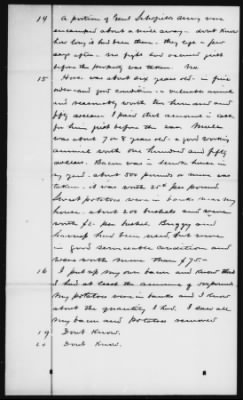 14 A portion of Genl Schofields Army was
encamped about a mile away - dont know
how long it had been there - they left a few
days after - no fight had occurred just
before the property was taken. No
15 Horse was about six years old - in fine
order - and good condition - a valuable animal
and reasonably worth two hundred and
fifty dollars. I paid that amount in cash
for him just before the war. Mule
was about 7 or 8 years old - a good working
animal worth one hundred and fifty
dollars. Bacon was in smoke house in
my yard - about 500 pounds or more was
taken - it was worth 25¢ per pound
Sweet potatoes were in banks near my
house - about 200 bushels and were
worth $1- per bushel. Buggy and
harness had been used but were
in good serviceable condition and
were worth more than $75.-
16 I put up my own bacon and know that
I had at least the amount of
my potatoes were in banks and I know
about the quantity I had. I saw all
my bacon and potatoes removed
19 Dont Know.
20 Dont Know.